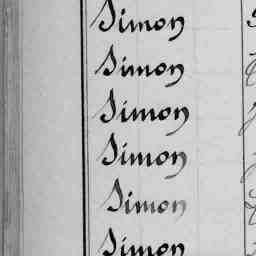 Simon
Simon
Simon
Simon
Simon
Simon